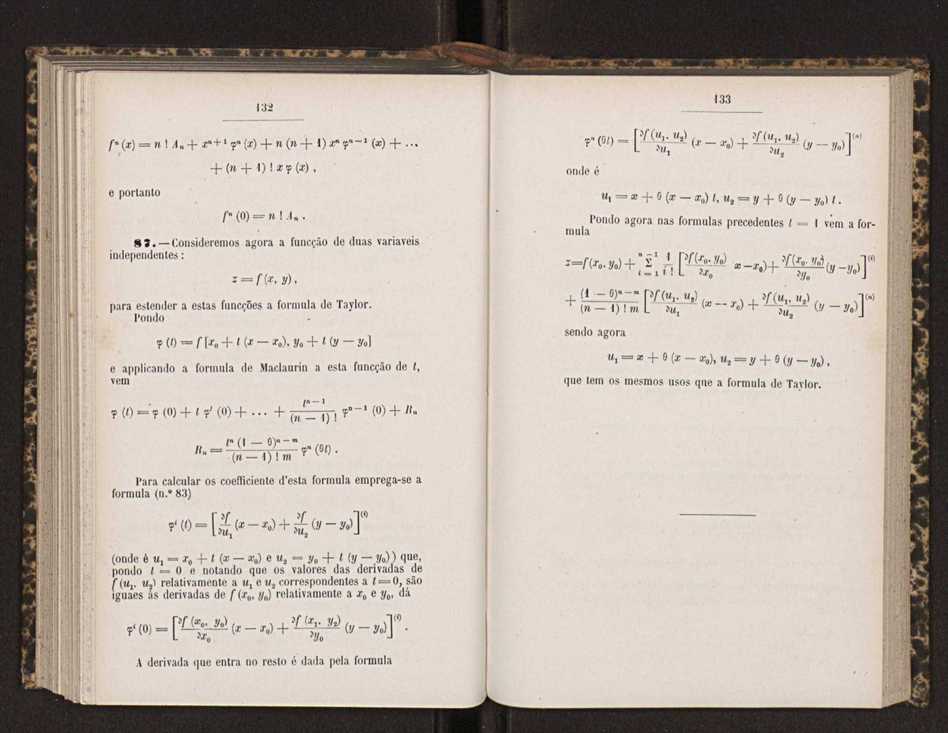 132
fⁿ (x) = n ! Aₙ + xⁿ⁺¹ φⁿ (x) + n (n + 1) xⁿ φⁿ⁻¹ (x) + ...
+ (n + 1) ! x φ (x) ,
e portanto
fⁿ (0) = n ! Aₙ .
87. — Consideremos agora a funcção de duas variaveis
independentes :
z = f (x, y) ,
para estender a estas funcções a formula de Taylor.
Pondo
φ (t) = f [x₀ + t (x — x₀), y₀ + t (y — y₀]
e applicando a formula de Maclaurin a esta funcção de t,
vem
φ (t) = φ (0) + t φ' (0) + ... + tⁿ⁻¹ / (n — 1) ! φⁿ⁻¹ (0) + Rₙ
Rₙ = tⁿ (1 — θ)ⁿ⁻ᵐ / (n — 1) ! m φⁿ (θt) .
Para calcular os coefficiente d'esta formula emprega-se a
formula (n.º 83)
φⁱ (t) = [∂f / ∂u₁ (x — x₀) + ∂f / ∂u₂ (y — y₀)]⁽ⁱ⁾
(onde é u₁ = x₀ + t (x — x₀) e u₂ = y₀ + t (y — y₀) ) que,
pondo t = 0 e notando que os valores das derivadas de
f (u₁, u₂) relativamente a u₁ e u₂ correspondentes a t = 0, são
iguaes ás derivadas de f (x₀, y₀) relativamente a x₀ e y₀, dá
φⁱ (0) = [∂f (x₀, y₀) / ∂x₀ (x — x₀) + ∂f (x₁, y₂) / ∂y₀ (y — y₀)]⁽ⁱ⁾ .
A derivada que entra no resto é dada pela formula
133
φⁿ (θt) = [∂f (u₁, u₂) / ∂u₁ (x — x₀) + ∂f (u₁, u₂) / ∂u₂ (y — y₀)]⁽ⁿ⁾
onde é
u₁ = x + θ (x — x₀) t, u₂ = y + θ (y — y₀) t .
Pondo agora nas formulas precedentes t = 1 vem a for-
mula
z=f(x₀, y₀) + Σ n — 1 i = 1 1 / i ! [∂f(x₀, y₀) / ∂x₀ x —x₀) + ∂f(x₀, y₀) / ∂y₀ (y —y₀)]⁽ⁱ⁾
+ (1 — θ)ⁿ⁻ᵐ / (n — 1) ! m [∂f (u₁, u₂) / ∂u₁ (x — x₀) + ∂f (u₁, u₂) / ∂u₂ (y — y₀)]⁽ⁿ⁾
sendo agora
u₁ = x + θ (x — x₀), u₂ = y + θ (y — y₀) ,
que tem os mesmos usos que a formula de Taylor.